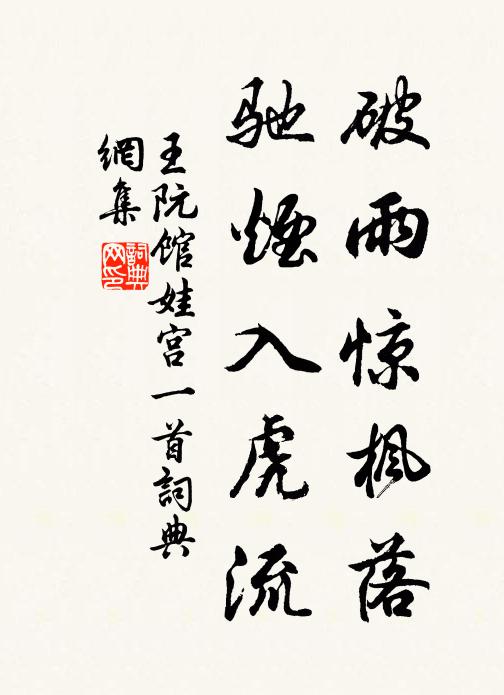 破雨惊枫落
驰烟入虎流
王阮馆娃宫一首词典
網集
詞典
网印